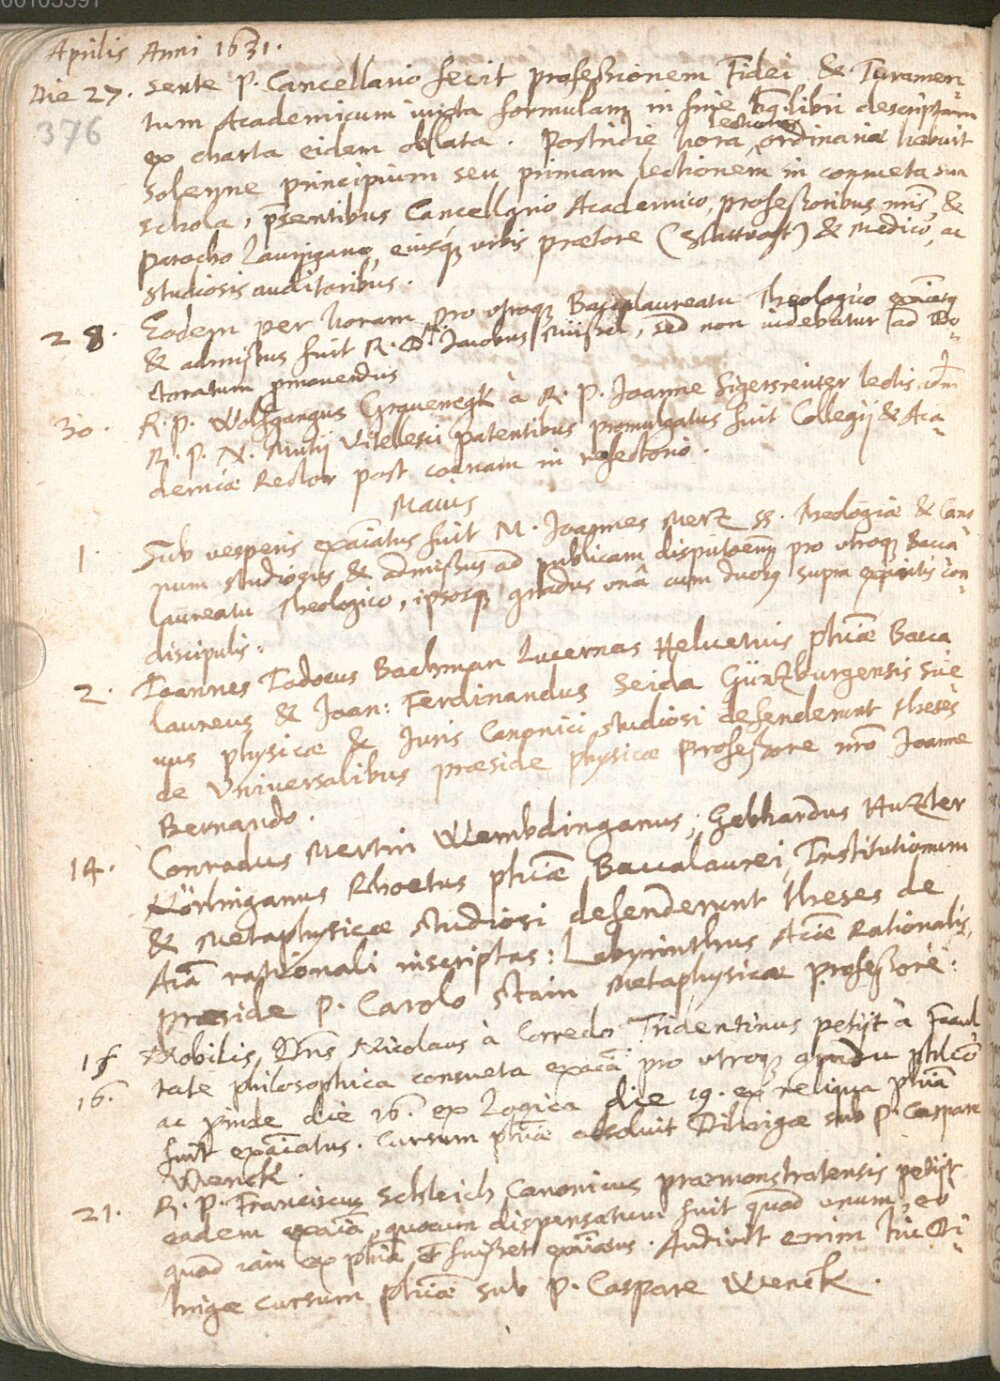 00105391
Aprilis Anni 1631.
Die 27. sente P. Cancellario fecit professionem Fidei & Iuramen-
376 tum Academicum iuxta formulam in fine libri descriptam
ex charta eidem oblata. Postridie hora lectionis ordinaria habuit
solenne principium seu primam lectionem in consueta sua
schola, pñsentibus Cancellario Academico, professoribus nris, &
parocho Lauingano, eiusq; urbis praetore & Medico, ac
studiosis auditoribus.
28. Eodem per horam pro vtroq; Baccalaureatu Theologico exãiatq
& admissus fuit R. D. Jacobus, sed non videbatur ad Do-
ctoratum pmouendus
30. R. P. Wolfgangus Grauenegk à R. P. Joanne Sigersreitter lectis adm
R. P. N. Mutij Vitellesci patentibus promulgatus fuit Collegij & Aca-
demiae Rector post coenam in refectorio.
Maius
1. Sub vesperis exãiatus fuit M. Joannes Mertz SS. Theologiae & Cano
num studiosus & admissus ad publicam disputãoem pro vtroq; Bacca
laureatu Theologico, ipsosq; gradus vnâ cum duobq supra expositis con-
discipulis.
2. Ioannes Iodocus Bachman Lucernas Heluetius phiae Bacca
laureus & Joan: Ferdinandus Seida Güntzburgensis Sue
uus physicae & Iuris Canonici studiosi defenderunt theses
de Vniuersalibus praeside physicae Professore nro Joanne
Bernardo.
14. Conradus Mertin Wembdinganus, Gebhardus Hutzler
Nörlinganus Rhoetus phiae Baccalaurei, Institutionum
& Metaphysicae studiosi defenderunt theses de
Aiã rationali inscriptas: Labyrinthus Aiae Rationalis,
praeside P. Carolo Stain Metaphysicae professore:
15 Nobilis Dns Nicolaus à Corredo Tridentinus petijt à Facul
16. tate philosophica consueta exãia pro vtroq; gradu phico
ac pinde die 16. ex Logica die 19. ex reliqua phiã
fuit exãiatus. Cursum phiae absoluit Dilingae sub P. Caspare
Wenck.
21. R. P. Franciscus Schleich Canonicus praemonstratensis petijt
eadem exãia, quocum dispensatum fuit quoad vnum, eo
quod iam ex phiã fuisset exãiatus. Audiuit enim hic Di-
lingae cursum phiae sub P. Caspare Wenck.